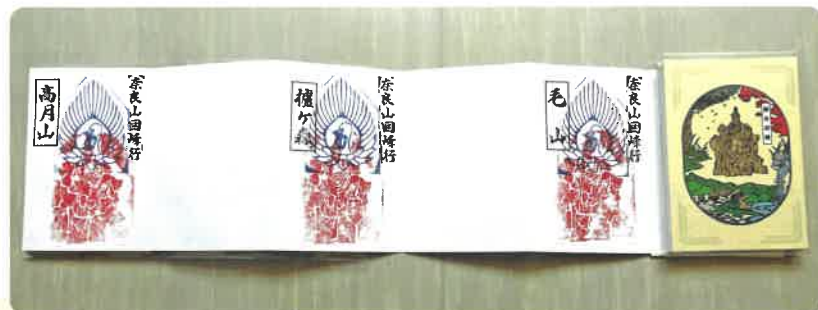 奈良山回峰行
毛山
奈良山回峰行
奈良山回峰行
高月山